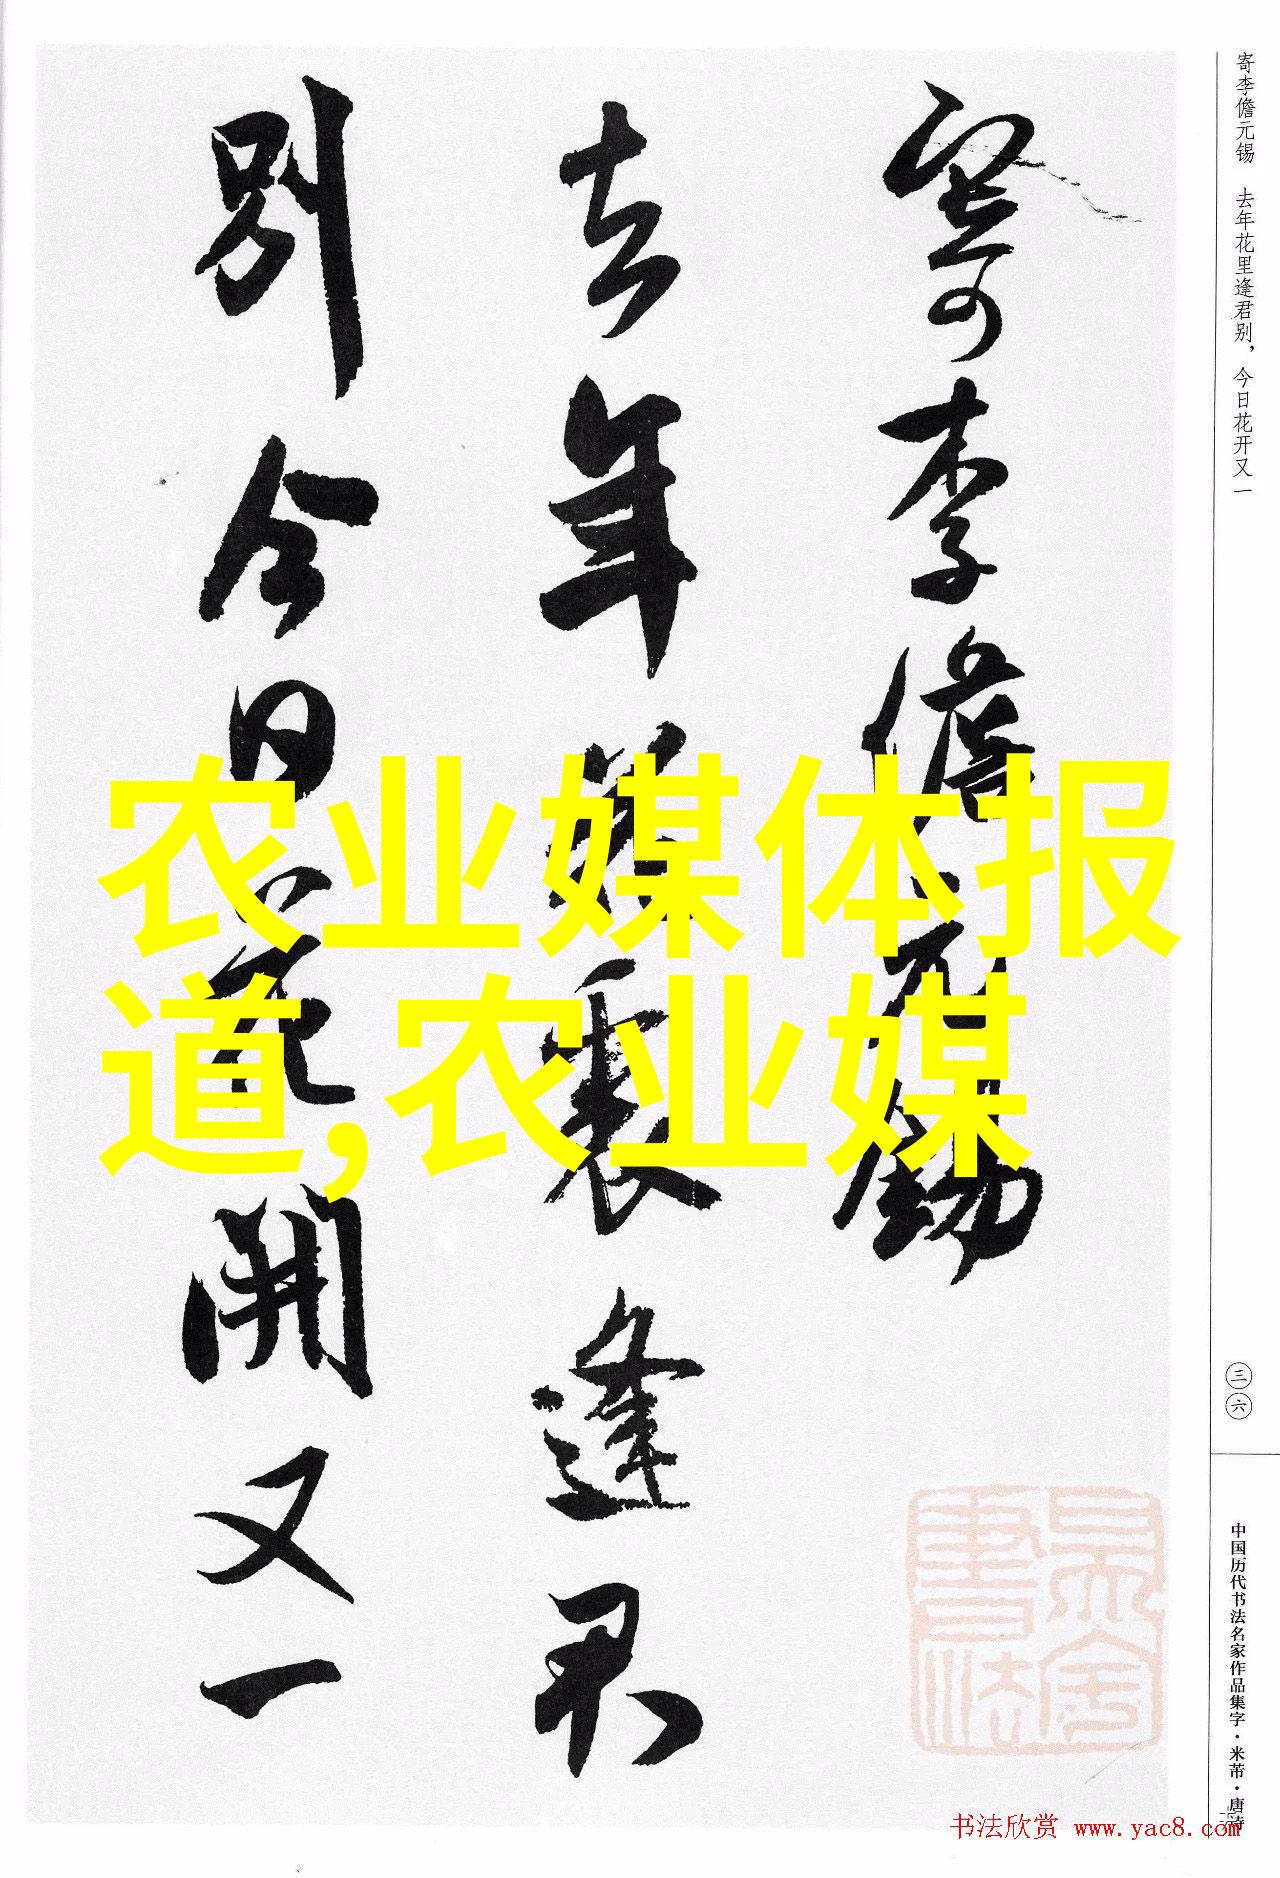 寄李儋元锡　去年花里逢君别，今日花开又一
寄李儋元錫
去年花裏逢君
別今日花開又一
农业媒体报
道,农业媒
三六
中国历代书法名家作品集字·米芾·唐诗
书法欣赏 www.yac8.com